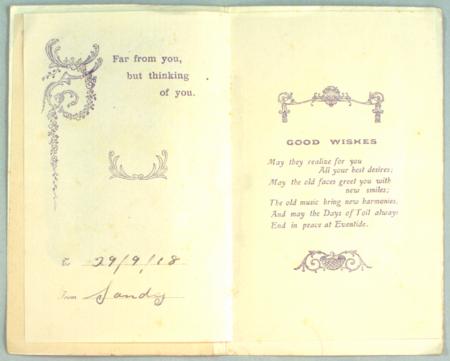 Far from you,
but thinking
of you.
To 29/9/18
From Sandy
GOOD WISHES
May they realize for you
All your best desires;
May the old faces greet you with
new smiles;
The old music bring new harmonies.
And may the Days of Toil always
End in peace at Eventide.